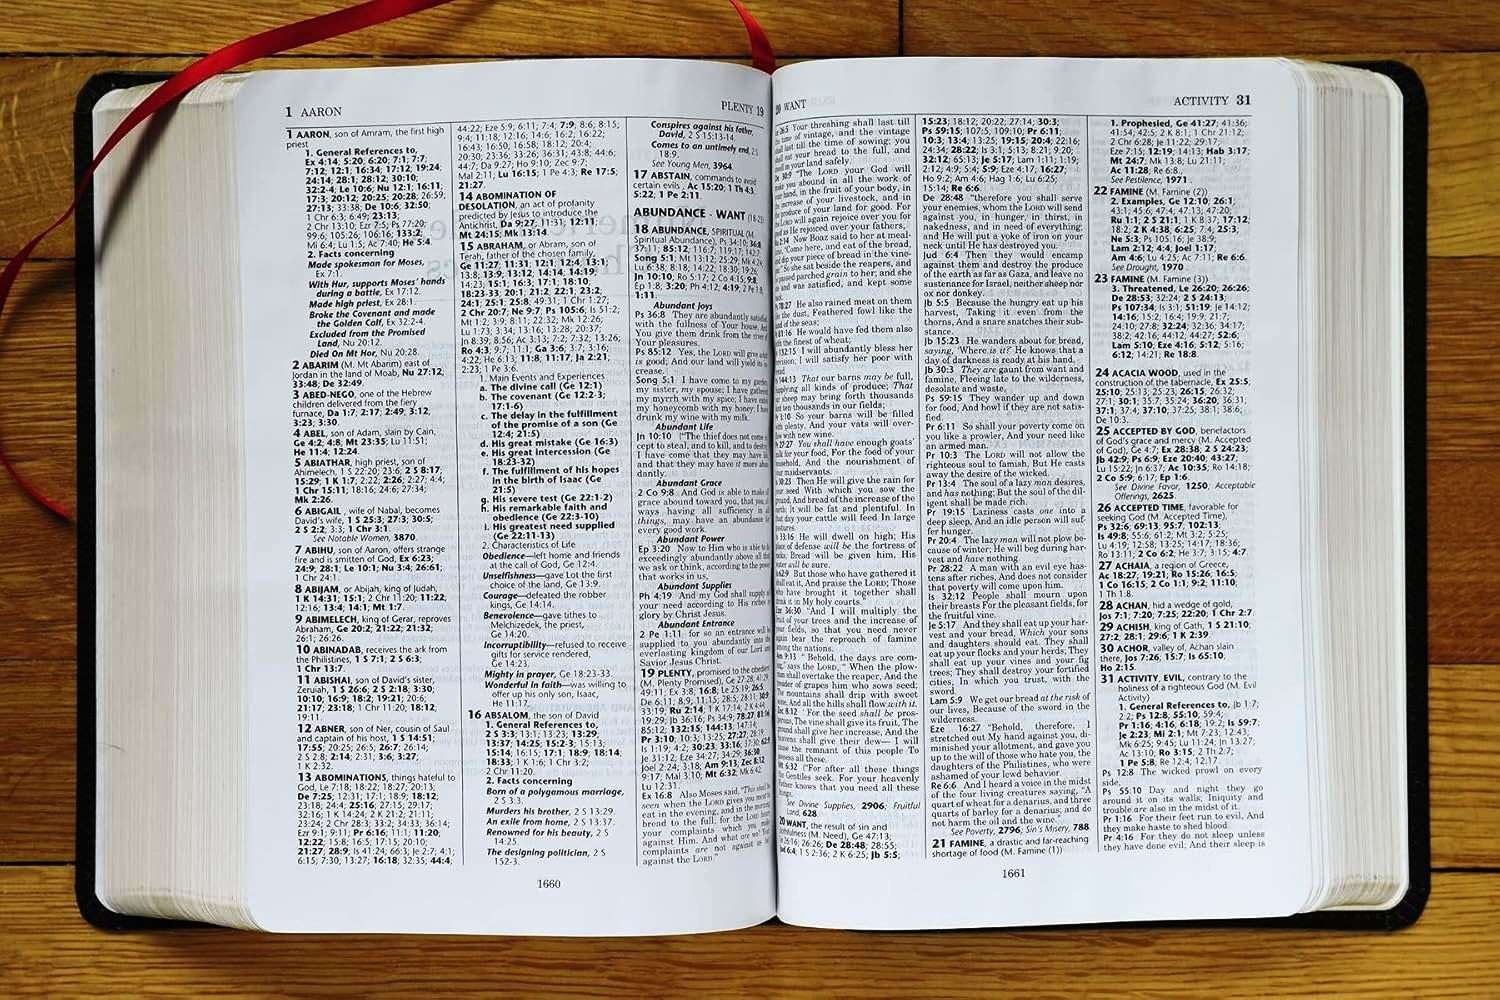 1 AARON
PLENTY 19
1 AARON, son of Amram, the first high
priest
1. General References to,
Ex 4:14; 5:20; 6:20; 7:1; 7:7;
7:12; 12:1; 16:34; 17:12; 19:24;
24:14; 28:1; 28:12; 30:10;
32:2-4; Le 10:6; Nu 12:1; 16:11;
17:3; 20:12; 20:25; 20:28; 26:59;
27:13; 33:38; De 10:6; 32:50;
1 Chr 6:3; 6:49; 23:13;
2 Chr 13:10; Ezr 7:5; Ps 77:20;
99:6; 105:26; 106:16; 133:2;
Mi 6:4; Lu 1:5; Ac 7:40; He 5:4.
2. Facts concerning
Made spokesman for Moses,
Ex 7:1.
With Hur, supports Moses' hands
during a battle, Ex 17:12.
Made high priest, Ex 28:1.
Broke the Covenant and made
the Golden Calf, Ex 32:2-4.
Excluded from the Promised
Land, Nu 20:12.
Died On Mt Hor, Nu 20:28.
2 ABARIM (M. Mt Abarim) east of
Jordan in the land of Moab, Nu 27:12;
33:48; De 32:49.
3 ABED-NEGO, one of the Hebrew
children delivered from the fiery
furnace, Da 1:7; 2:17; 2:49; 3:12,
3:23; 3:30.
4 ABEL, son of Adam, slain by Cain,
Ge 4:2; 4:8; Mt 23:35; Lu 11:51;
He 11:4; 12:24.
5 ABIATHAR, high priest, son of
Ahimelech, 1 S 22:20; 23:6; 2 S 8:17;
15:29; 1 K 1:7; 2:22; 2:26; 2:27; 4:4;
1 Chr 15:11; 18:16; 24:6; 27:34;
Mk 2:26.
6 ABIGAIL , wife of Nabal, becomes
David's wife, 1 S 25:3; 27:3; 30:5;
2 S 2:2; 3:3; 1 Chr 3:1.
See Notable Women, 3870.
7 ABIHU, son of Aaron, offers strange
fire and is smitten of God, Ex 6:23;
24:9; 28:1; Le 10:1; Nu 3:4; 26:61;
1 Chr 24:1.
8 ABIJAM, or Abijah, king of Judah,
1 K 14:31; 15:1; 2 Chr 11:20; 11:22;
12:16; 13:4; 14:1; Mt 1:7.
9 ABIMELECH, king of Gerar, reproves
Abraham, Ge 20:2; 21:22; 21:32;
26:1; 26:26.
10 ABINADAB, receives the ark from
the Philistines, 1 S 7:1; 2 S 6:3;
1 Chr 13:7.
11 ABISHAI, son of David's sister,
Zeruiah, 1 S 26:6; 2 S 2:18; 3:30;
10:10; 16:9; 18:2; 19:21; 20:6;
21:17; 23:18; 1 Chr 11:20; 18:12,
19:11.
12 ABNER, son of Ner, cousin of Saul
and captain of his host, 1 S 14:51;
17:55; 20:25; 26:5; 26:7; 26:14;
2 S 2:8; 2:14; 2:31; 3:6; 3:27;
1 K 2:32.
13 ABOMINATIONS, things hateful to
God, Le 7:18; 18:22; 18:27; 20:13;
De 7:25; 12:31; 17:1; 18:9; 18:12;
23:18; 24:4; 25:16; 27:15; 29:17;
32:16; 1 K 14:24; 2 K 21:2; 21:11;
23:24; 2 Chr 28:3; 33:2; 34:33; 36:14;
Ezr 9:1; 9:11; Pr 6:16; 11:1; 11:20;
12:22; 15:8; 16:5; 17:15; 20:10;
21:27; 28:9; Is 41:24; 66:3; Je 2:7; 4:1;
6:15; 7:30; 13:27; 16:18; 32:35; 44:4;
44:22; Eze 5:9; 6:11; 7:4; 7:9; 8:6; 8:15;
9:4; 11:18; 12:16; 14:6; 16:2; 16:22;
16:43; 16:50; 16:58; 18:12; 20:4;
20:30; 23:36; 33:26; 36:31; 43:8; 44:6;
44:7; Da 9:27; Ho 9:10; Zec 9:7;
Mal 2:11; Lu 16:15; 1 Pe 4:3; Re 17:5,
21:27.
14 ABOMINATION OF
DESOLATION, an act of profanity
predicted by Jesus to introduce the
Antichrist, Da 9:27; 11:31; 12:11;
Mt 24:15; Mk 13:14.
15 ABRAHAM, or Abram, son of
Terah, father of the chosen family,
Ge 11:27; 11:31; 12:1; 12:4; 13:1;
13:8; 13:9; 13:12; 14:14; 14:19;
14:23; 15:1; 16:3; 17:1; 18:10,
18:23-33; 20:1; 21:2; 22:1; 23:2;
24:1; 25:1; 25:8; 49:31; 1 Chr 1:27;
2 Chr 20:7; Ne 9:7; Ps 105:6; Is 51:2;
Mt 1:2; 3:9; 8:11; 22:32; Mk 12:26;
Lu 1:73; 3:34; 13:16; 13:28; 20:37;
Jn 8:39; 8:56; Ac 3:13; 7:2; 7:32; 13:26;
Ro 4:3; 9:7; 11:1; Ga 3:6; 3:7; 3:16;
4:22; He 6:13; 11:8; 11:17; Ja 2:21,
2:23; 1 Pe 3:6.
1. Main Events and Experiences
a. The divine call (Ge 12:1)
b. The covenant (Ge 12:2-3;
17:1-6)
c. The delay in the fulfillment
of the promise of a son (Ge
12:4; 21:5)
d. His great mistake (Ge 16:3)
e. His great intercession (Ge
18:23-32)
f. The fulfillment of his hopes
in the birth of Isaac (Ge
21:5)
g. His severe test (Ge 22:1-2)
h. His remarkable faith and
obedience (Ge 22:3-10)
i. His greatest need supplied
(Ge 22:11-13)
2. Characteristics of Life
Obedience—left home and friends
at the call of God, Ge 12:4.
Unselfishness—gave Lot the first
choice of the land, Ge 13:9.
Courage—defeated the robber
kings, Ge 14:14.
Benevolence—gave tithes to
Melchizedek, the priest,
Ge 14:20.
Incorruptibility—refused to receive
gifts for service rendered,
Ge 14:23.
Mighty in prayer, Ge 18:23-33.
Wonderful in faith—was willing to
offer up his only son, Isaac,
He 11:17.
16 ABSALOM, the son of David
1. General References to,
2 S 3:3; 13:1; 13:23; 13:29;
13:37; 14:25; 15:2-3; 15:13;
15:14; 16:15; 17:1; 18:9; 18:14;
18:33; 1 K 1:6; 1 Chr 3:2;
2 Chr 11:20.
2. Facts concerning
Born of a polygamous marriage,
2 S 3:3.
Murders his brother, 2 S 13:29.
An exile from home, 2 S 13:37.
Renowned for his beauty, 2 S
14:25.
The designing politician, 2 S
152-3.
Conspires against his father,
David, 2 S 15:13-14.
Comes to an untimely end, 2 S
18:9.
See Young Men, 3964.
17 ABSTAIN, commands to avoid
certain evils , Ac 15:20; 1 Th 4:3;
5:22; 1 Pe 2:11.
ABUNDANCE - WANT (18-23)
18 ABUNDANCE, SPIRITUAL (M.
Spiritual Abundance), Ps 34:10; 36:8
37:11; 85:12; 116:7; 119:17; 142:7
Song 5:1; Mt 13:12; 25:29; Mk 4:24
Lu 6:38; 8:18; 14:22; 18:30; 19:26
Jn 10:10; Ro 5:17; 2 Co 4:15; 9:8
Ep 1:8; 3:20; Ph 4:12; 4:19; 2 Pe 1:8
1:11.
Abundant Joys
Ps 36:8 They are abundantly satisfied
with the fullness of Your house, And
You give them drink from the river of
Your pleasures.
Ps 85:12 Yes, the LORD will give what
is good; And our land will yield its in-
crease.
Song 5:1 I have come to my garden,
my sister, my spouse; I have gathered
my myrrh with my spice; I have eaten
my honeycomb with my honey; I have
drunk my wine with my milk.
Abundant Life
Jn 10:10 ("The thief does not come ex-
cept to steal, and to kill, and to destroy.
I have come that they may have life,
and that they may have it more abun-
dantly.
Abundant Grace
2 Co 9:8 And God is able to make all
grace abound toward you, that you, al-
ways having all sufficiency in all
things, may have an abundance for
every good work.
Abundant Power
Ep 3:20 Now to Him who is able to do
exceedingly abundantly above all that
we ask or think, according to the power
that works in us,
Abundant Supplies
Ph 4:19 And my God shall supply all
your need according to His riches in
glory by Christ Jesus.
Abundant Entrance
2 Pe 1:11 for so an entrance will be
supplied to you abundantly into the
everlasting kingdom of our Lord and
Savior Jesus Christ.
19 PLENTY, promised to the obedient
(M. Plenty Promised), Ge 27:28; 41:29
49:11; Ex 3:8; 16:8; Le 25:19; 26:5
De 6:11; 8:9; 11:15; 28:5; 28:11; 30:9
33:19; Ru 2:14; 1 K 17:14; 2 K 4:6
19:29; Jb 36:16; Ps 34:9; 78:27; 81:16
85:12; 132:15; 144:13; 147:14;
Pr 3:10; 10:3; 13:25; 27:27; 28:19
Is 1:19; 4:2; 30:23; 33:16; 37:30; 62:9
Je 31:12; Eze 34:27; 34:29; 36:30
Joel 2:24; 3:18; Am 9:13; Zec 8:12
9:17; Mal 3:10; Mt 6:32; Mk 6:42
Lu 12:31.
Ex 16:8 Also Moses said, "This shall be
seen when the LORD gives you meat to
eat in the evening, and in the morning
bread to the full; for the LORD hears
your complaints which you make
against Him. And what are we? Your
complaints are not against us but
against the LORD."
1660
20 WANT
ACTIVITY 31
26:5 Your threshing shall last till
the time of vintage, and the vintage
shall last till the time of sowing; you
shall eat your bread to the full, and
dwell in your land safely.
30:9 "The LORD your God will
make you abound in all the work of
your hand, in the fruit of your body, in
the increase of your livestock, and in
the produce of your land for good. For
the LORD will again rejoice over you for
good as He rejoiced over your fathers,
2:14 Now Boaz said to her at meal-
time, "Come here, and eat of the bread,
and dip your piece of bread in the vine-
gar." So she sat beside the reapers, and
he passed parched grain to her; and she
ate and was satisfied, and kept some
back.
78:27 He also rained meat on them
like the dust, Feathered fowl like the
sand of the seas;
81:16 He would have fed them also
with the finest of wheat;
132:15 I will abundantly bless her
provision; I will satisfy her poor with
bread.
144:13 That our barns may be full,
Supplying all kinds of produce; That
our sheep may bring forth thousands
And ten thousands in our fields;
3:10 So your barns will be filled
with plenty, And your vats will over-
flow with new wine.
27:27 You shall have enough goats'
milk for your food, For the food of your
household, And the nourishment of
your maidservants.
30:23 Then He will give the rain for
your seed With which you sow the
ground, And bread of the increase of the
earth; It will be fat and plentiful. In
that day your cattle will feed In large
pastures.
33:16 He will dwell on high; His
place of defense will be the fortress of
rocks; Bread will be given him, His
water will be sure.
62:9 But those who have gathered it
shall eat it, And praise the LORD; Those
who have brought it together shall
drink it in My holy courts."
Eze 36:30 "And I will multiply the
fruit of your trees and the increase of
your fields, so that you need never
again bear the reproach of famine
among the nations.
Am 9:13 " Behold, the days are com-
ing," says the LORD, " When the plow-
man shall overtake the reaper, And the
treader of grapes him who sows seed;
The mountains shall drip with sweet
wine, And all the hills shall flow with it.
Zec 8:12 ' For the seed shall be pros-
perous, The vine shall give its fruit, The
ground shall give her increase, And the
heavens shall give their dew— I will
cause the remnant of this people To
possess all these.
Mt 6:32 ("For after all these things
the Gentiles seek. For your heavenly
Father knows that you need all these
things.
See Divine Supplies, 2906; Fruitful
Land, 628.
20 WANT, the result of sin and
slothfulness (M. Need), Ge 47:13;
Le 26:16; 26:26; De 28:48; 28:55;
Jud 6:4; 1 S 2:36; 2 K 6:25; Jb 5:5;
15:23; 18:12; 20:22; 27:14; 30:3;
Ps 59:15; 107:5; 109:10; Pr 6:11;
10:3; 13:4; 13:25; 19:15; 20:4; 22:16;
24:34; 28:22; Is 3:1; 5:13; 8:21; 9:20;
32:12; 65:13; Je 5:17; Lam 1:11; 1:19;
2:12; 4:9; 5:4; 5:9; Eze 4:17; 16:27;
Ho 9:2; Am 4:6; Hag 1:6; Lu 6:25;
15:14; Re 6:6.
De 28:48 "therefore you shall serve
your enemies, whom the LORD will send
against you, in hunger, in thirst, in
nakedness, and in need of everything;
and He will put a yoke of iron on your
neck until He has destroyed you.
Jud 6:4 Then they would encamp
against them and destroy the produce
of the earth as far as Gaza, and leave no
sustenance for Israel, neither sheep nor
ox nor donkey.
Jb 5:5 Because the hungry eat up his
harvest, Taking it even from the
thorns, And a snare snatches their sub-
stance.
Jb 15:23 He wanders about for bread,
saying, 'Where is it?' He knows that a
day of darkness is ready at his hand.
Jb 30:3 They are gaunt from want and
famine, Fleeing late to the wilderness,
desolate and waste,
Ps 59:15 They wander up and down
for food, And howl if they are not satis-
fied.
Pr 6:11 So shall your poverty come on
you like a prowler, And your need like
an armed man.
Pr 10:3 The LORD will not allow the
righteous soul to famish, But He casts
away the desire of the wicked.
Pr 13:4 The soul of a lazy man desires,
and has nothing; But the soul of the dil-
igent shall be made rich.
Pr 19:15 Laziness casts one into a
deep sleep, And an idle person will suf-
fer hunger.
Pr 20:4 The lazy man will not plow be-
cause of winter; He will beg during har-
vest and have nothing.
Pr 28:22 A man with an evil eye has-
tens after riches, And does not consider
that poverty will come upon him.
Is 32:12 People shall mourn upon
their breasts For the pleasant fields, for
the fruitful vine.
Je 5:17 And they shall eat up your har-
vest and your bread, Which your sons
and daughters should eat. They shall
eat up your flocks and your herds; They
shall eat up your vines and your fig
trees; They shall destroy your fortified
cities, In which you trust, with the
sword.
Lam 5:9 We get our bread at the risk of
our lives, Because of the sword in the
wilderness.
Eze 16:27 "Behold, therefore, I
stretched out My hand against you, di-
minished your allotment, and gave you
up to the will of those who hate you, the
daughters of the Philistines, who were
ashamed of your lewd behavior.
Re 6:6 And I heard a voice in the midst
of the four living creatures saying, "A
quart of wheat for a denarius, and three
quarts of barley for a denarius; and do
not harm the oil and the wine."
See Poverty, 2796; Sin's Misery, 788
21 FAMINE, a drastic and far-reaching
shortage of food (M. Famine (1))
1. Prophesied, Ge 41:27; 41:36;
41:54; 42:5; 2 K 8:1; 1 Chr 21:12;
2 Chr 6:28; Je 11:22; 29:17;
Eze 7:15; 12:19; 14:13; Hab 3:17;
Mt 24:7; Mk 13:8; Lu 21:11;
Ac 11:28; Re 6:8..
See Pestilence, 1971.
22 FAMINE (M. Famine (2))
2. Examples, Ge 12:10; 26:1;
43:1; 45:6; 47:4; 47:13; 47:20;
Ru 1:1; 2 S 21:1; 1 K 8:37; 17:12;
18:2; 2 K 4:38; 6:25; 7:4; 25:3;
Ne 5:3; Ps 105:16; Je 38:9;
Lam 2:12; 4:4; Joel 1:17;
Am 4:6; Lu 4:25; Ac 7:11; Re 6:6.
See Drought, 1970
23 FAMINE (M. Famine (3))
3. Threatened, Le 26:20; 26:26;
De 28:53; 32:24; 2 S 24:13;
Ps 107:34; Is 3:1; 51:19; Je 14:12;
14:16; 15:2; 16:4; 19:9; 21:7;
24:10; 27:8; 32:24; 32:36; 34:17;
38:2; 42:16; 44:12; 44:27; 52:6;
Lam 5:10; Eze 4:16; 5:12; 5:16;
6:12; 14:21; Re 18:8.
24 ACACIA WOOD, used in the
construction of the tabernacle, Ex 25:5,
25:10; 25:13; 25:23; 26:15; 26:32,
27:1; 30:1; 35:7; 35:24; 36:20; 36:31;
37:1; 37:4; 37:10; 37:25; 38:1; 38:6;
De 10:3.
25 ACCEPTED BY GOD, benefactors
of God's grace and mercy (M. Accepted
of God), Ge 4:7; Ex 28:38; 2 S 24:23;
Jb 42:9; Ps 6:9; Eze 20:40; 43:27;
Lu 15:22; Jn 6:37; Ac 10:35; Ro 14:18;
2 Co 5:9; 6:17; Ep 1:6.
See Divine Favor, 1250; Acceptable
Offerings, 2625.
26 ACCEPTED TIME, favorable for
seeking God (M. Accepted Time),
Ps 32:6; 69:13; 95:7; 102:13;
Is 49:8; 55:6; 61:2; Mt 3:2; 5:25;
Lu 4:19; 12:58; 13:25; 14:17; 18:36;
Ro 13:11; 2 Co 6:2; He 3:7; 3:15; 4:7
27 ACHAIA, a region of Greece,
Ac 18:27; 19:21; Ro 15:26; 16:5;
1 Co 16:15; 2 Co 1:1; 9:2; 11:10;
1 Th 1:8.
28 ACHAN, hid a wedge of gold,
Jos 7:1; 7:20; 7:25; 22:20; 1 Chr 2:7
29 ACHISH, king of Gath, 1 S 21:10;
27:2; 28:1; 29:6; 1 K 2:39
30 ACHOR, valley of, Achan slain
there, Jos 7:26; 15:7; Is 65:10,
Ho 2:15.
31 ACTIVITY, EVIL, contrary to the
holiness of a righteous God (M. Evil
Activity)
1. General References to, Jb 1:7;
2:2; Ps 12:8; 55:10; 59:4;
Pr 1:16; 4:16; 6:18; 19:2; Is 59:7;
Je 2:23; Mi 2:1; Mt 7:23; 12:43;
Mk 6:25; 9:45; Lu 11:24; Jn 13:27;
Ac 13:10; Ro 3:15; 2 Th 2:7;
1 Pe 5:8; Re 12:4; 12:17.
Ps 12:8 The wicked prowl on every
side,
Ps 55:10 Day and night they go
around it on its walls; Iniquity and
trouble are also in the midst of it.
Pr 1:16 For their feet run to evil, And
they make haste to shed blood.
Pr 4:16 For they do not sleep unless
they have done evil; And their sleep is
1661